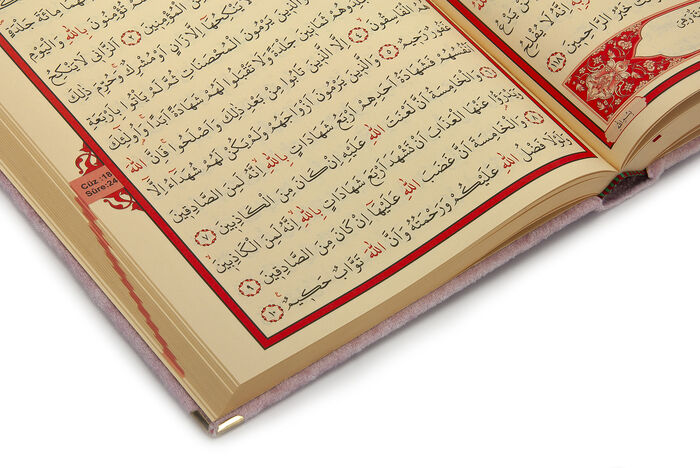 جَلْدَةٍ
بِاللّٰهِ وَالْيَوْمِ
الْمُؤْمِنِينَ ﴿٢﴾ اَلزَّانِي لَا يَنْكِحُ
لَا يَنْكِحُهَٓا اِلَّا زَانٍ اَوْ مُشْرِكٌ وَحُرِّمَ ذٰلِكَ
وَالَّذِينَ يَرْمُونَ الْمُحْصَنَاتِ ثُمَّ لَمْ يَأْتُوا بِاَرْبَعَةِ
ثَمَانِينَ جَلْدَةً وَلَا تَقْبَلُوا لَهُمْ شَهَادَةً اَبَدًا وَاُولٰٓئِكَ
الْفَاسِقُونَ ﴿٤﴾ اِلَّا الَّذِينَ تَابُوا مِنْ بَعْدِ ذٰلِكَ وَاَصْلَحُوا فَاِنَّ اللّٰهَ
غَفُورٌ رَحِيمٌ ﴿٥﴾ وَالَّذِينَ يَرْمُونَ اَزْوَاجَهُمْ وَلَمْ يَكُنْ لَهُمْ شُهَدَٓاءُ اِلَّٓا
اَنْفُسُهُمْ فَشَهَادَةُ اَحَدِهِمْ اَرْبَعُ شَهَادَاتٍ بِاللّٰهِ اِنَّهُ لَمِنَ الصَّادِقِينَ
﴿٦﴾ وَالْخَامِسَةُ اَنَّ لَعْنَتَ اللّٰهِ عَلَيْهِ اِنْ كَانَ مِنَ الْكَاذِبِينَ ﴿٧﴾
وَيَدْرَؤُا عَنْهَا الْعَذَابَ اَنْ تَشْهَدَ اَرْبَعَ شَهَادَاتٍ بِاللّٰهِ اِنَّهُ لَمِنَ الْكَاذِبِينَ
﴿٨﴾ وَالْخَامِسَةَ اَنَّ غَضَبَ اللّٰهِ عَلَيْهَٓا اِنْ كَانَ مِنَ الصَّادِقِينَ ﴿٩﴾
وَلَوْلَا فَضْلُ اللّٰهِ عَلَيْكُمْ وَرَحْمَتُهُ وَاَنَّ اللّٰهَ تَوَّابٌ حَكِيمٌ ﴿١٠﴾
Cüz :18
Sûre:24
اِنَّهُ لَا يُفْلِحُ
خَيْرُ الرَّاحِمِينَ ﴿١١٨﴾